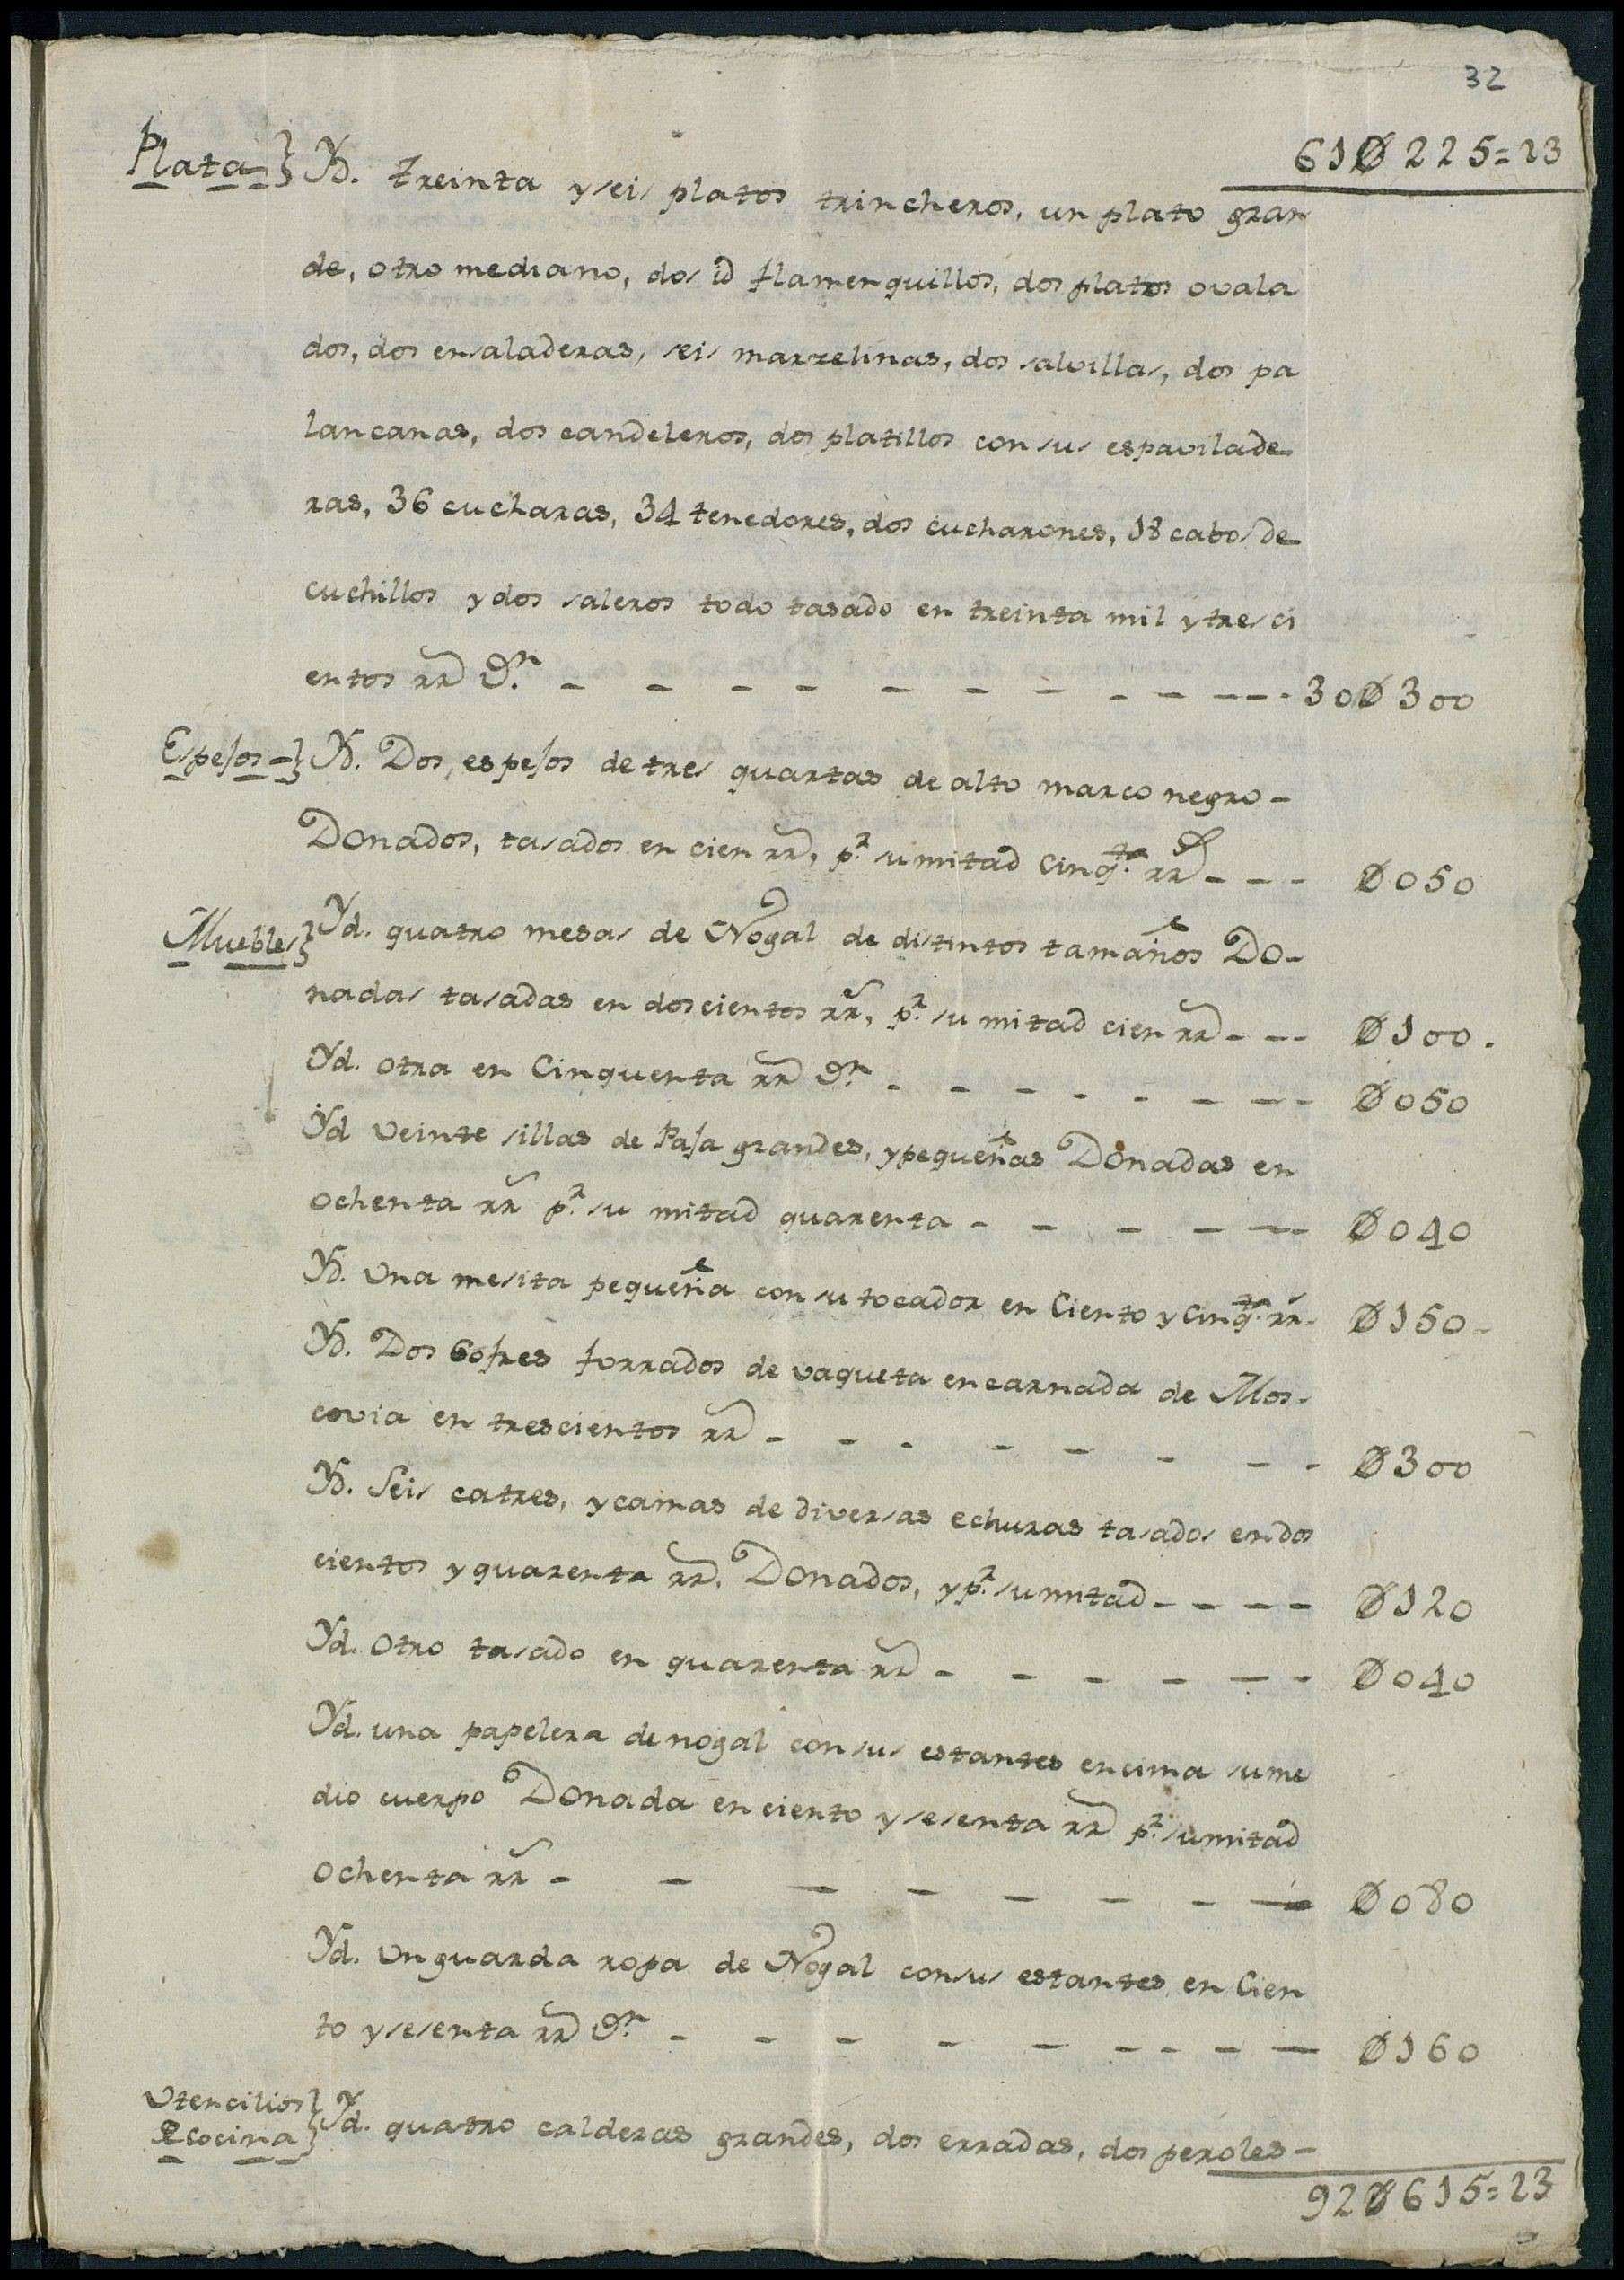 32
61Ø225=23
Plata} Yd. treinta y seis platos trincheros, un plato gran
de, otro mediano, dos id flamenquillos, dos platos ovala
dos, dos ensaladeras, seis marzelinas, dos salvillas, dos pa
lancanas, dos candeleros, dos platillos con sus espavilade
ras, 36 cucharas, 34 tenedores, dos cucharones, 18 cabos de
cuchillos y dos saleros todo tasado en treinta mil y tresci
entos rr.^s v.^n - - - - - - - - - - - 30Ø300
Espejos} Yd. Dos espejos de tres quartas de alto marco negro -
Donados, tasados en cien rr.^s, p.^r su mitad Cinq.^ta rr.^s - - - Ø050
Muebles} Yd. quatro mesas de Nogal de distintos tamaños Do-
nadas tasadas en doscientos rr.^s, p.^r su mitad cien rr.^s - - - Ø100.
Yd. otra en Cinquenta rr.^s v.^n - - - - - - - - Ø050
Yd veinte sillas de Paja grandes, y pequeñas Donadas en
ochenta rr.^s p.^r su mitad quarenta - - - - - - Ø040
Yd. una mesita pequeña con su tocador en Ciento y Cinq.^ta rr.^s - Ø150-
Yd. Dos Cofres forrados de vaqueta encarnada de Mos-
covia en trescientos rr.^s - - - - - - - - Ø300
Yd. Seis catres, y camas de diversas echuras tasados en dos
cientos y quarenta rr.^s, Donados, y p.^r su mitad - - - - Ø120
Yd. Otro tasado en quarenta rr.^s - - - - - - Ø040
Yd. una papelera de nogal con sus estantes encima su me
dio cuerpo Donada en ciento y sesenta rr.^s p.^r su mitad
ochenta rr.^s - - - - - - - - Ø080
Yd. Un guarda ropa de Nogal con sus estantes en Cien
to y sesenta rr.^s v.^n - - - - - - - - - Ø160
Utencilios
de cocina} Yd. quatro calderas grandes, dos erradas, dos peroles -
92Ø615=23